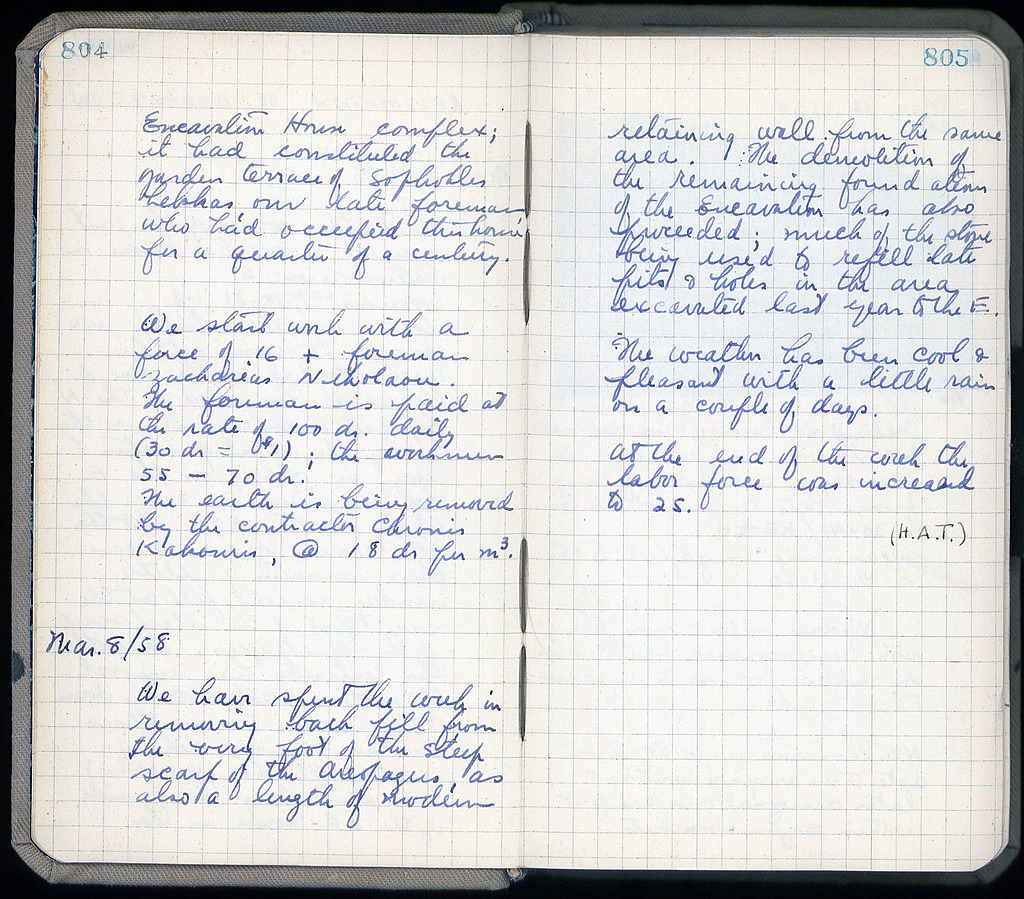 804
Excavation House complex;
it had constituted the
garden terrace of Sophokles
Lekkas our late foreman
who had occupied this house
for a quarter of a century.
We start work with a
force of 16 + foreman
Zacharias Nikolaou.
The foreman is paid at
the rate of 100 dr. daily
(30 dr = $1); the workmen
55 – 70 dr.
The earth is being removed
by the contractor Chronis
Kakouris, @ 18 dr per m³.
Mar. 8/58
We have spent the week in
removing back fill from
the very foot of the steep
scarp of the Areopagus, as
also a length of modern
805
retaining wall from the same
area. The demolition of
the remaining foundations
of the Excavation has also
proceeded; much of the stone
being used to refill late
pits & holes in the area
excavated last year to the E.
The weather has been cool &
pleasant with a little rain
on a couple of days.
At the end of the week the
labor force was increased
to 25.
(H.A.T.)